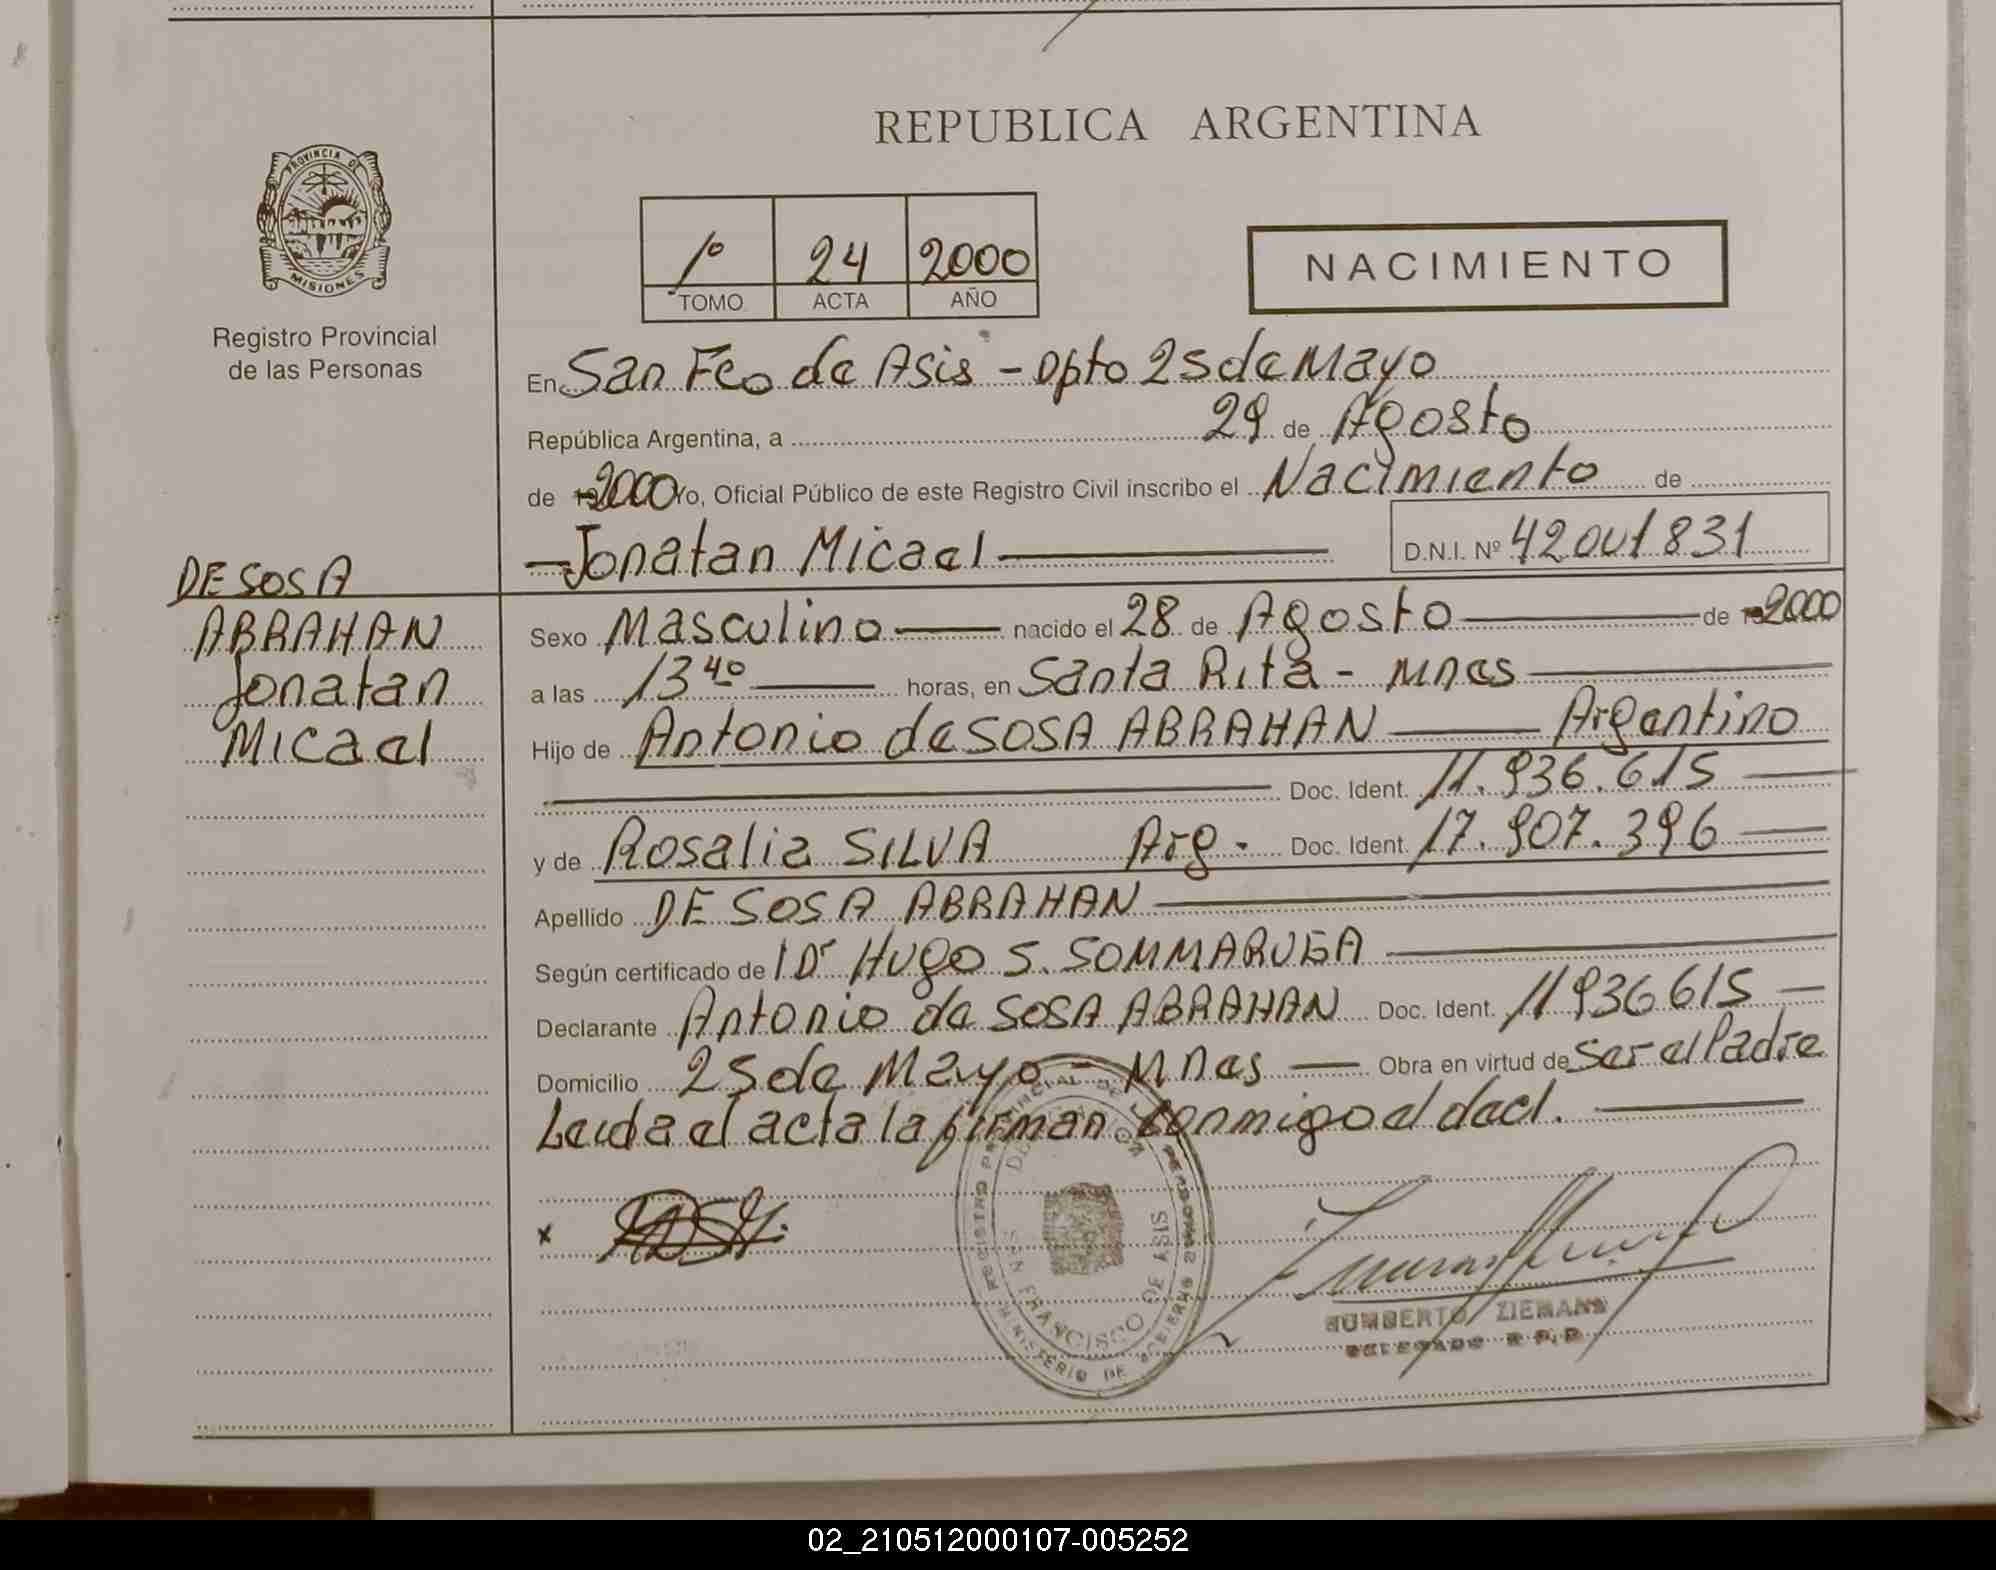 PROVINCIA DE
MISIONES
Registro Provincial
de las Personas
REPUBLICA ARGENTINA
1º 24 2000
TOMO ACTA AÑO
NACIMIENTO
En San Fco de Asis - Dpto 25 de Mayo
República Argentina, a 29 de Agosto
de 2000 Yo, Oficial Público de este Registro Civil inscribo el Nacimiento de
Jonatan Micael D.N.I. Nº
DE SOSA
ABRAHAN
Jonatan
Micael
Sexo Masculino nacido el 28 de Agosto de 2000
a las 13 40 horas, en Santa Rita - Mnes
Hijo de Antonio de SOSA ABRAHAN Argentino
Doc. Ident. 11.936.615
y de Rosalia SILVA Arg. Doc. Ident. 17.907.396
Apellido DE SOSA ABRAHAN
Según certificado de Dr HUGO S. SOMMARUGA
Declarante Antonio de SOSA ABRAHAN Doc. Ident. 11936615
Domicilio 25 de Mayo - Mnes Obra en virtud de Ser el Padre
Leida el acta la firman conmigo el decl.
x
SAN FRANCISCO DE ASIS
MINISTERIO DE GOBIERNO
HUMBERTO ZIEMANN
DELEGADO R.P.P.
02_210512000107-005252